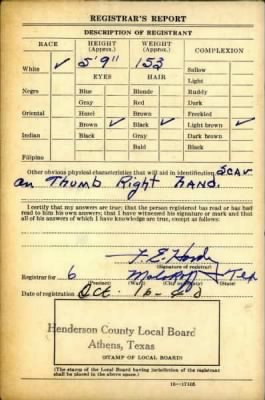 REGISTRAR'S REPORT
DESCRIPTION OF REGISTRANT
RACE HEIGHT (Approx.) WEIGHT (Approx.) COMPLEXION
White ✓ 5'9" 153 Sallow
EYES HAIR Light
Negro Blue Blonde Ruddy
Gray Red Dark
Oriental Hazel Brown Freckled
Brown ✓ Black ✓ Light brown ✓
Indian Black Gray Dark brown
Bald Black
Filipino
Other obvious physical characteristics that will aid in identification SCAR
on Thumb Right hand.
I certify that my answers are true; that the person registered has read or has had
read to him his own answers; that I have witnessed his signature or mark and that
all of his answers of which I have knowledge are true, except as follows:
(Signature of registrar)
Registrar for 6 Malakoff Tex
(Precinct) (Ward) (City or county) (State)
Date of registration Oct. 16-40
Henderson County Local Board
Athens, Texas
(STAMP OF LOCAL BOARD)
(The stamp of the Local Board having jurisdiction of the registrant
shall be placed in the above space.)